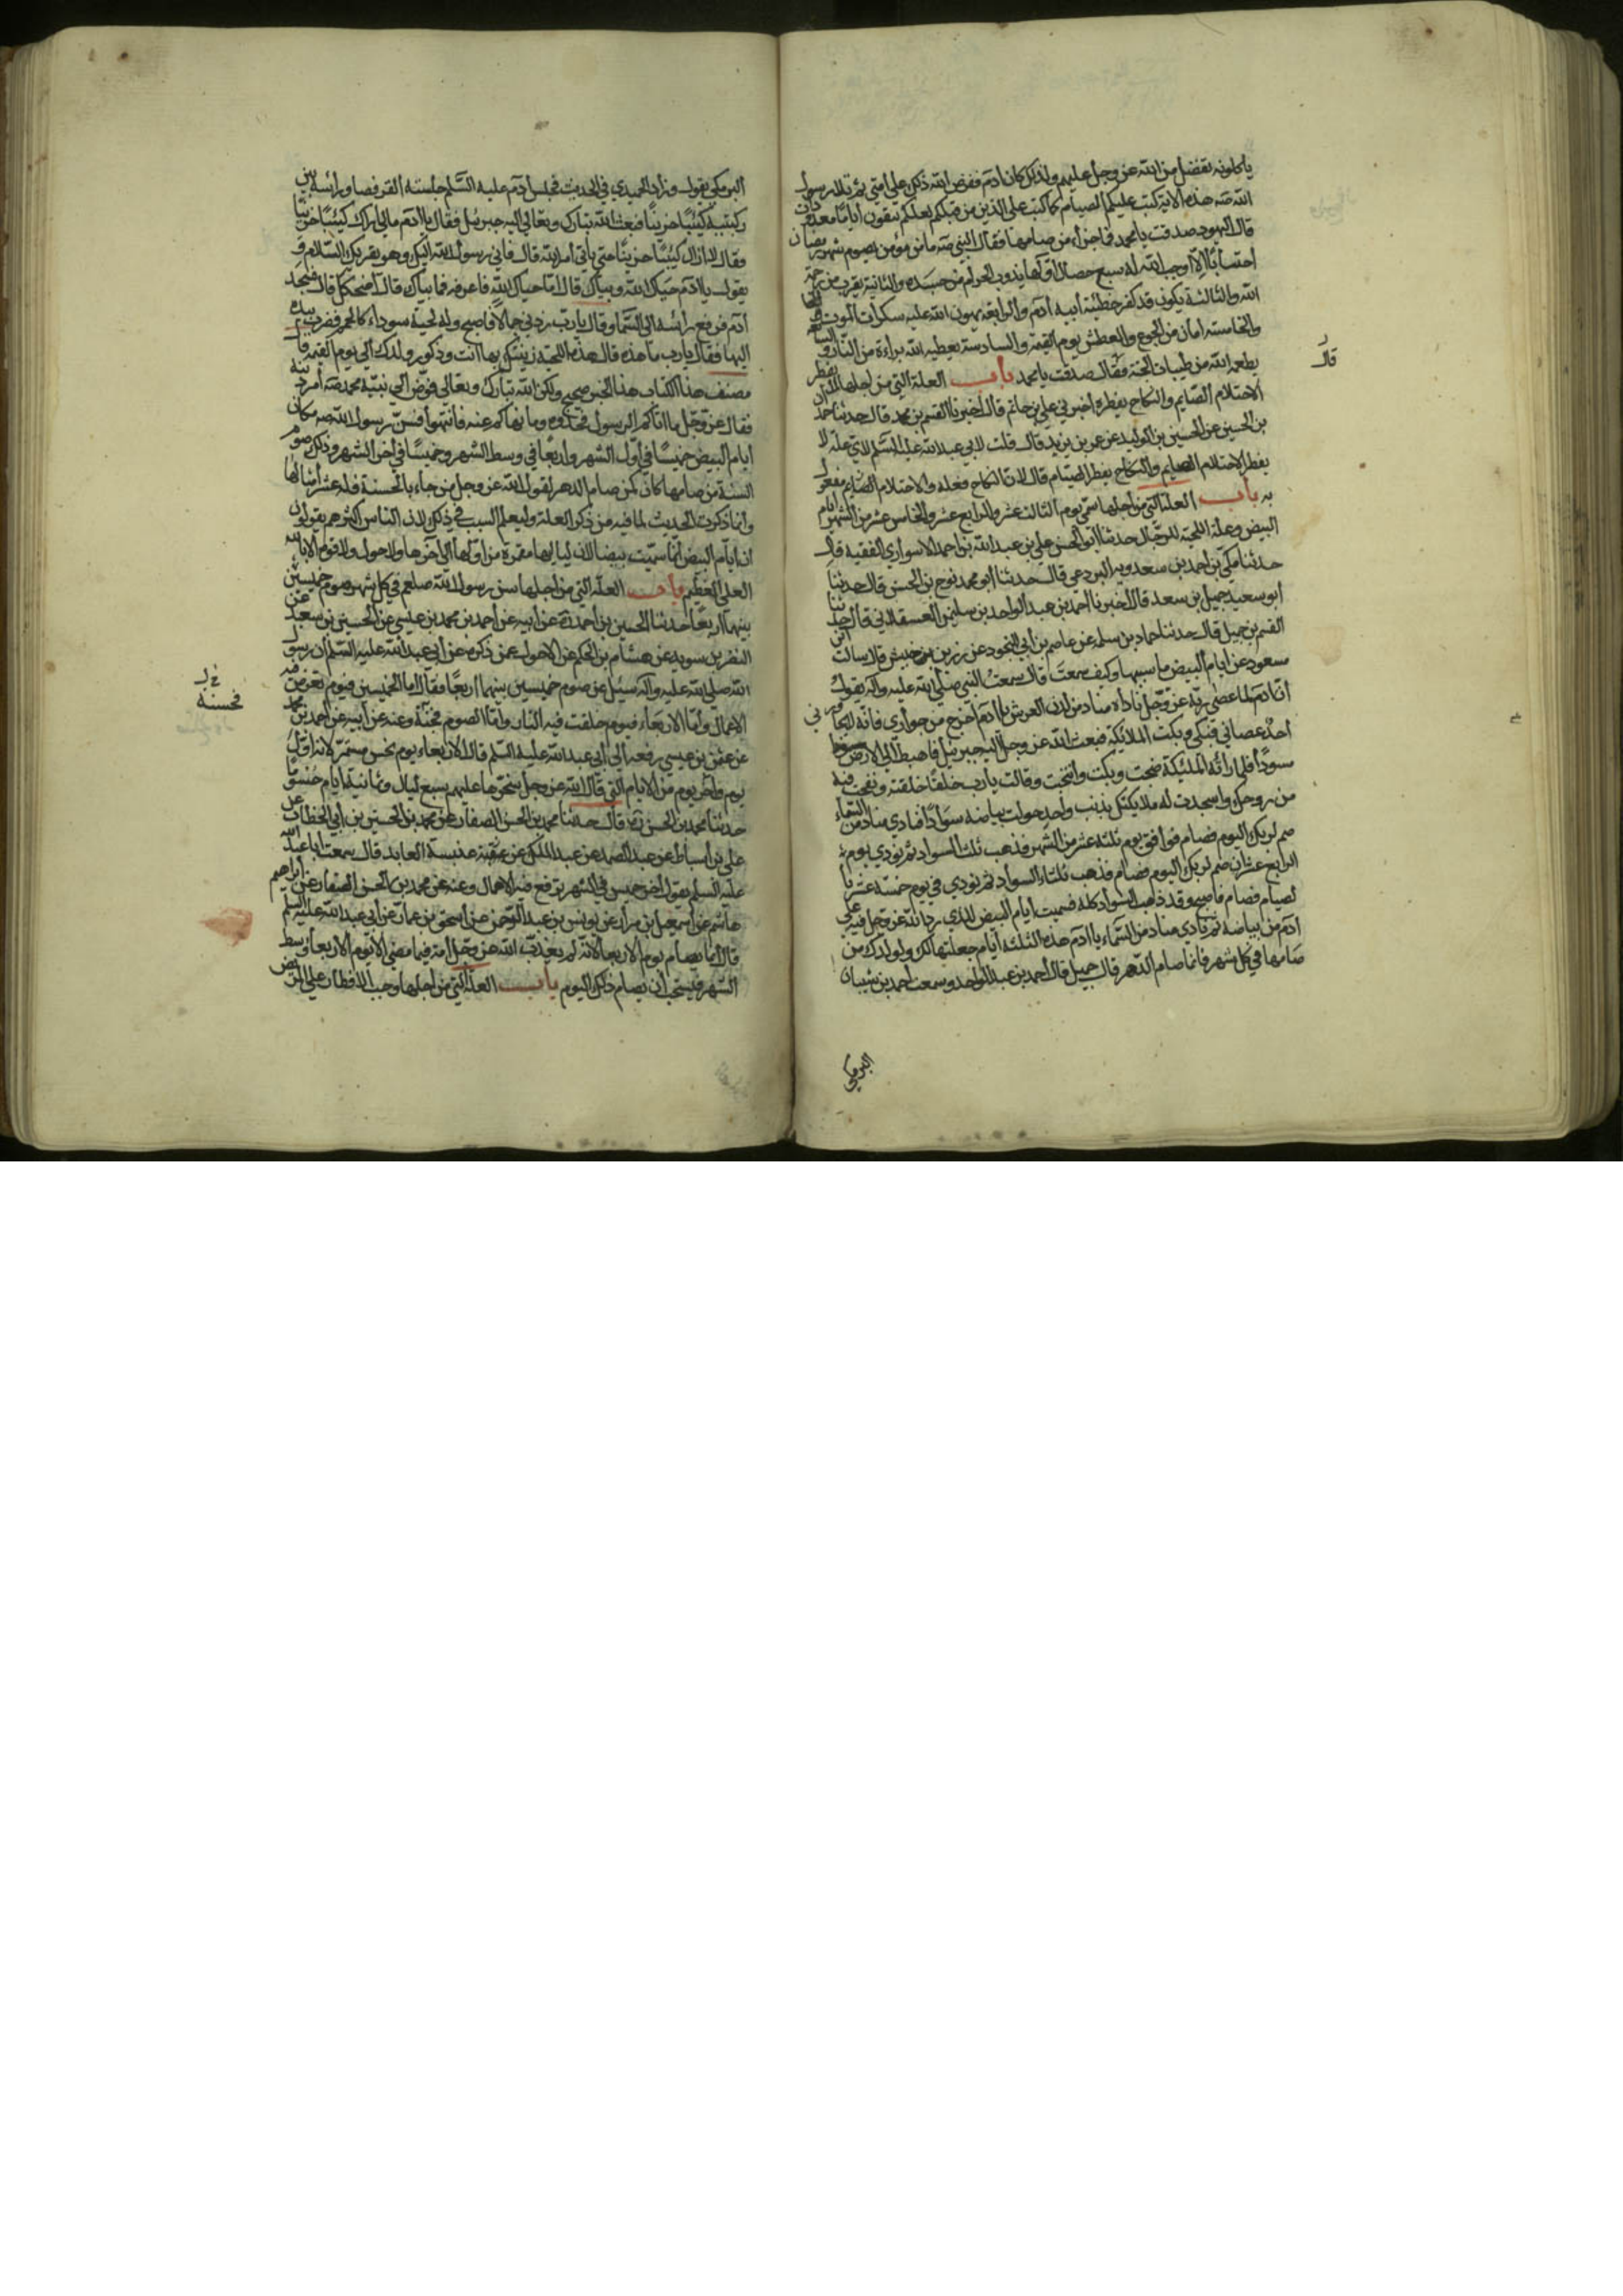 ياكلونه بفضل من الله عز وجل عليهم ولذلك كان ادم ففرض الله ذلك على امتي ثم تلا رسول
الله صه هذه الاية كتب عليكم الصيام كما كتب على الذين من قبلكم لعلكم تتقون أياما معدودات
قال اليهود صدقت يا محمد فما جزاء من صامها فقال النبي صه ما من مؤمن يصوم شهر رمضان
احتسابا الا اوجب الله له سبع خصال أولها يذوب الحرام من جسده والثانية يقرب من رحمة
الله والثالثة يكون قد كفر خطيئة أبيه آدم والرابعة يهون الله عليه سكرات الموت
والخامسة امان من الجوع والعطش يوم القيمة والسادسة يعطيه الله براءة من النار والسابعة
يطعمه الله من طيبات الجنة فقال صدقت يا محمد باب العلة التي من اجلها لا يفطر
الاحتلام الصايم والنكاح يفطره اخبرني علي بن حاتم قال اخبرنا القسم بن محمد قال حدثنا حمدان
بن الحسين عن الحسين بن الوليد عن عمر بن يزيد قال قلت لابي عبد الله عليه السلم لاي علة لا
يفطر الاحتلام الصايم والنكاح يفطر الصيام قال لان النكاح فعله والاحتلام الصايم مفعول
به باب العلة التي من اجلها سمي يوم الثالث عشر والرابع عشر والخامس عشر من الشهر أيام
البيض وعلة اللحية للرجال حدثنا ابو الحسن علي بن عبد الله بن احمد الاسواري الفقيه قال
حدثنا مكي بن احمد بن سعدويه البردعي قال حدثنا ابو محمد نوح بن الحسن قال حدثنا
أبو سعيد جميل بن سعد قال اخبرنا احمد بن عبد الواحد بن سليمن العسقلاني قال حدثنا
القسم بن جميل قال حدثنا حماد بن سلمه عن عاصم بن أبي النجود عن زر بن حبيش قال سالت ابن
مسعود عن ايام البيض ما سببها وكيف سمعت قال سمعت النبي صلى الله عليه وآله يقول
أن آدم لما عصى ربه عز وجل ناداه مناد من لدن العرش يا آدم اخرج من جواري فانه لا يجاورني
أحد عصاني فبكى وبكت الملائكة فبعث الله عز وجل اليه جبرئيل فاهبطه الى الارض
مسودا فلما رأته الملئكة ضجت وبكت وانتحبت وقالت يا رب خلقا خلقته ونفخت فيه
من روحك واسجدت له ملائكتك بذنب واحد حولت بياضه سوادا فنادى مناد من السماء
صم لربك اليوم فصام فوافق يوم ثلثة عشر من الشهر فذهب ثلث السواد ثم نودي يوم
الرابع عشر ان صم لربك اليوم فصام فذهب ثلثا السواد ثم نودي في يوم خمسة عشر با
لصيام فصام فاصبح وقد ذهب السواد كله فسميت أيام البيض للذي رد الله عز وجل فيه على
آدم من بياضه ثم نادى مناد من السماء يا آدم هذه الثلثة أيام جعلتها لك ولولدك من
صامها في كل شهر فانما صام الدهر قال جميل قال احمد بن عبد الواحد وسمعت أحمد بن شيبان
البرمكي
قال
البرمكي يقول وزاد الحميدي في الحديث فجلس آدم عليه السلم جلسة القرفصا ورأسه بين
ركبتيه كئيبا حزينا فبعث الله تبارك وتعالى اليه جبرئيل فقال يا آدم مالي اراك كئيبا حزينا
وقال لا ازال كئيبا حزينا حتى يأتي أمر الله قال فاني رسول الله اليك وهو يقرئك السلام و
يقول يا آدم حياك الله وبياك قال اما حياك الله فاعرفه فما بياك قال اضحكك قال فسجد
آدم فرفع رأسه الى السماء وقال يا رب زدني جمالا فاصبح وله لحية سوداء كالحمم فضرب بيده
اليها فقال يا رب ما هذه قال هذه اللحية زينتك بها انت وذكور ولدك الى يوم القيمة قال
مصنف هذا الكتاب هذا الخبر صحيح ولكن الله تبارك وتعالى فوض الى نبيه محمد صه أمر دينه
فقال عز وجل ما اتاكم الرسول فخذوه وما نهاكم عنه فانتهوا فسن رسول الله صه مكان
ايام البيض خميسا في أول الشهر وأربعا في وسط الشهر وخميسا في آخر الشهر وذلك صوم
السنة من صامها كان كمن صام الدهر لقول الله عز وجل من جاء بالحسنة فله عشر أمثالها
وانما ذكرت الحديث لما فيه من ذكر العلة وليعلم السبب في ذلك لان الناس اكثرهم يقولون
ان ايام البيض انما سميت بيضا لان لياليها مقمرة من اولها الى آخرها ولا حول ولا قوة الا بالله
العلي العظيم باب العلة التي من اجلها سن رسول الله صلعم في كل شهر صوم خميسين
بينهما اربعا حدثنا الحسين بن احمد عن أبيه عن أحمد بن محمد بن عيسى عن الحسين بن سعيد عن
النضر بن سويد عن هشام بن الحكم عن الاحول عمن ذكره عن أبي عبد الله عليه السلم أن رسول
الله صلى الله عليه وآله سئل عن صوم خميسين بينهما اربعا فقال اما الخميسين فيوم تعرض فيه
الاعمال وأما الاربعاء فيوم خلقت فيه النار واما الصوم فجنة وعنه عن أبيه عن احمد بن محمد
عن عثمن بن عيسى رفعه الى أبي عبد الله عليه السلم قال الاربعاء يوم نحس مستمر لانه اول
يوم وآخر يوم من الايام التي قال الله عز وجل سخرها عليهم سبع ليال وثمانية ايام حسوما
حدثنا محمد بن الحسن ره قال حدثنا محمد بن الحسن الصفار عن محمد بن الحسين بن ابي الخطاب عن
علي بن أسباط عن عبد الصمد عن عبد الملك عن عنبسة العابد قال سمعت ابا عبد الله
عليه السلم يقول آخر خميس في الشهر ترفع فيه الاعمال وعنه عن محمد بن الحسن الصفار عن ابراهيم
هاشم عن اسمعيل بن مرار عن يونس بن عبد الرحمن عن أسحق بن عمار عن أبي عبد الله عليه السلم
قال انما يصام يوم الاربعا لانه لم يعذب الله عز وجل امة فيما مضى الا يوم الاربعا وسط
الشهر فيستحب أن يصام ذلك اليوم باب العلة التي من اجلها وجب الافطار على المريض